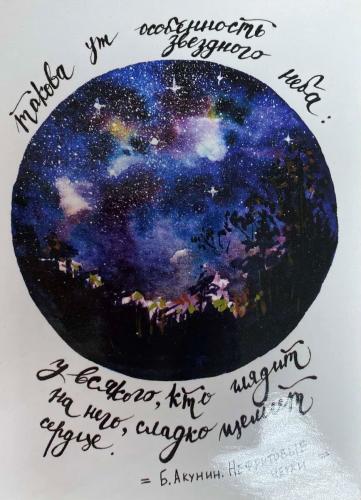 такова уж особенность
звездного неба:
у всякого, кто глядит
на него, сладко щемит
сердце.
= Б. Акунин. Нефритовые
четки =